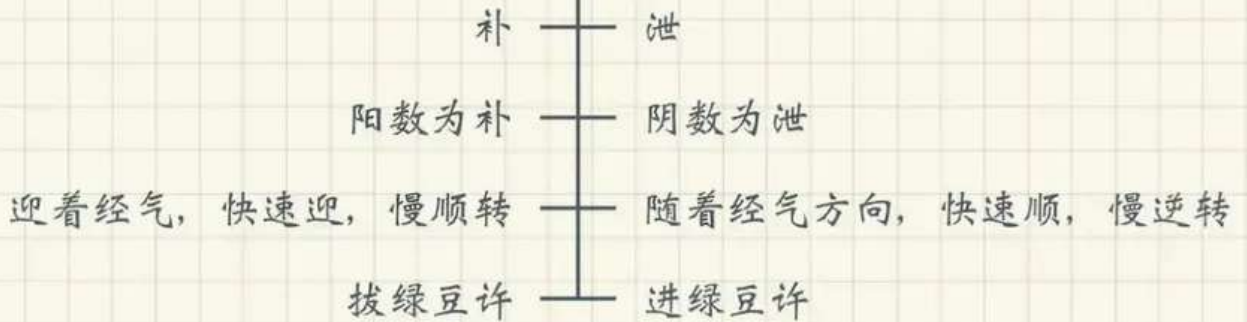 补 泄
阳数为补 阴数为泄
迎着经气，快速迎，慢顺转 随着经气方向，快速顺，慢逆转
拔绿豆许 进绿豆许